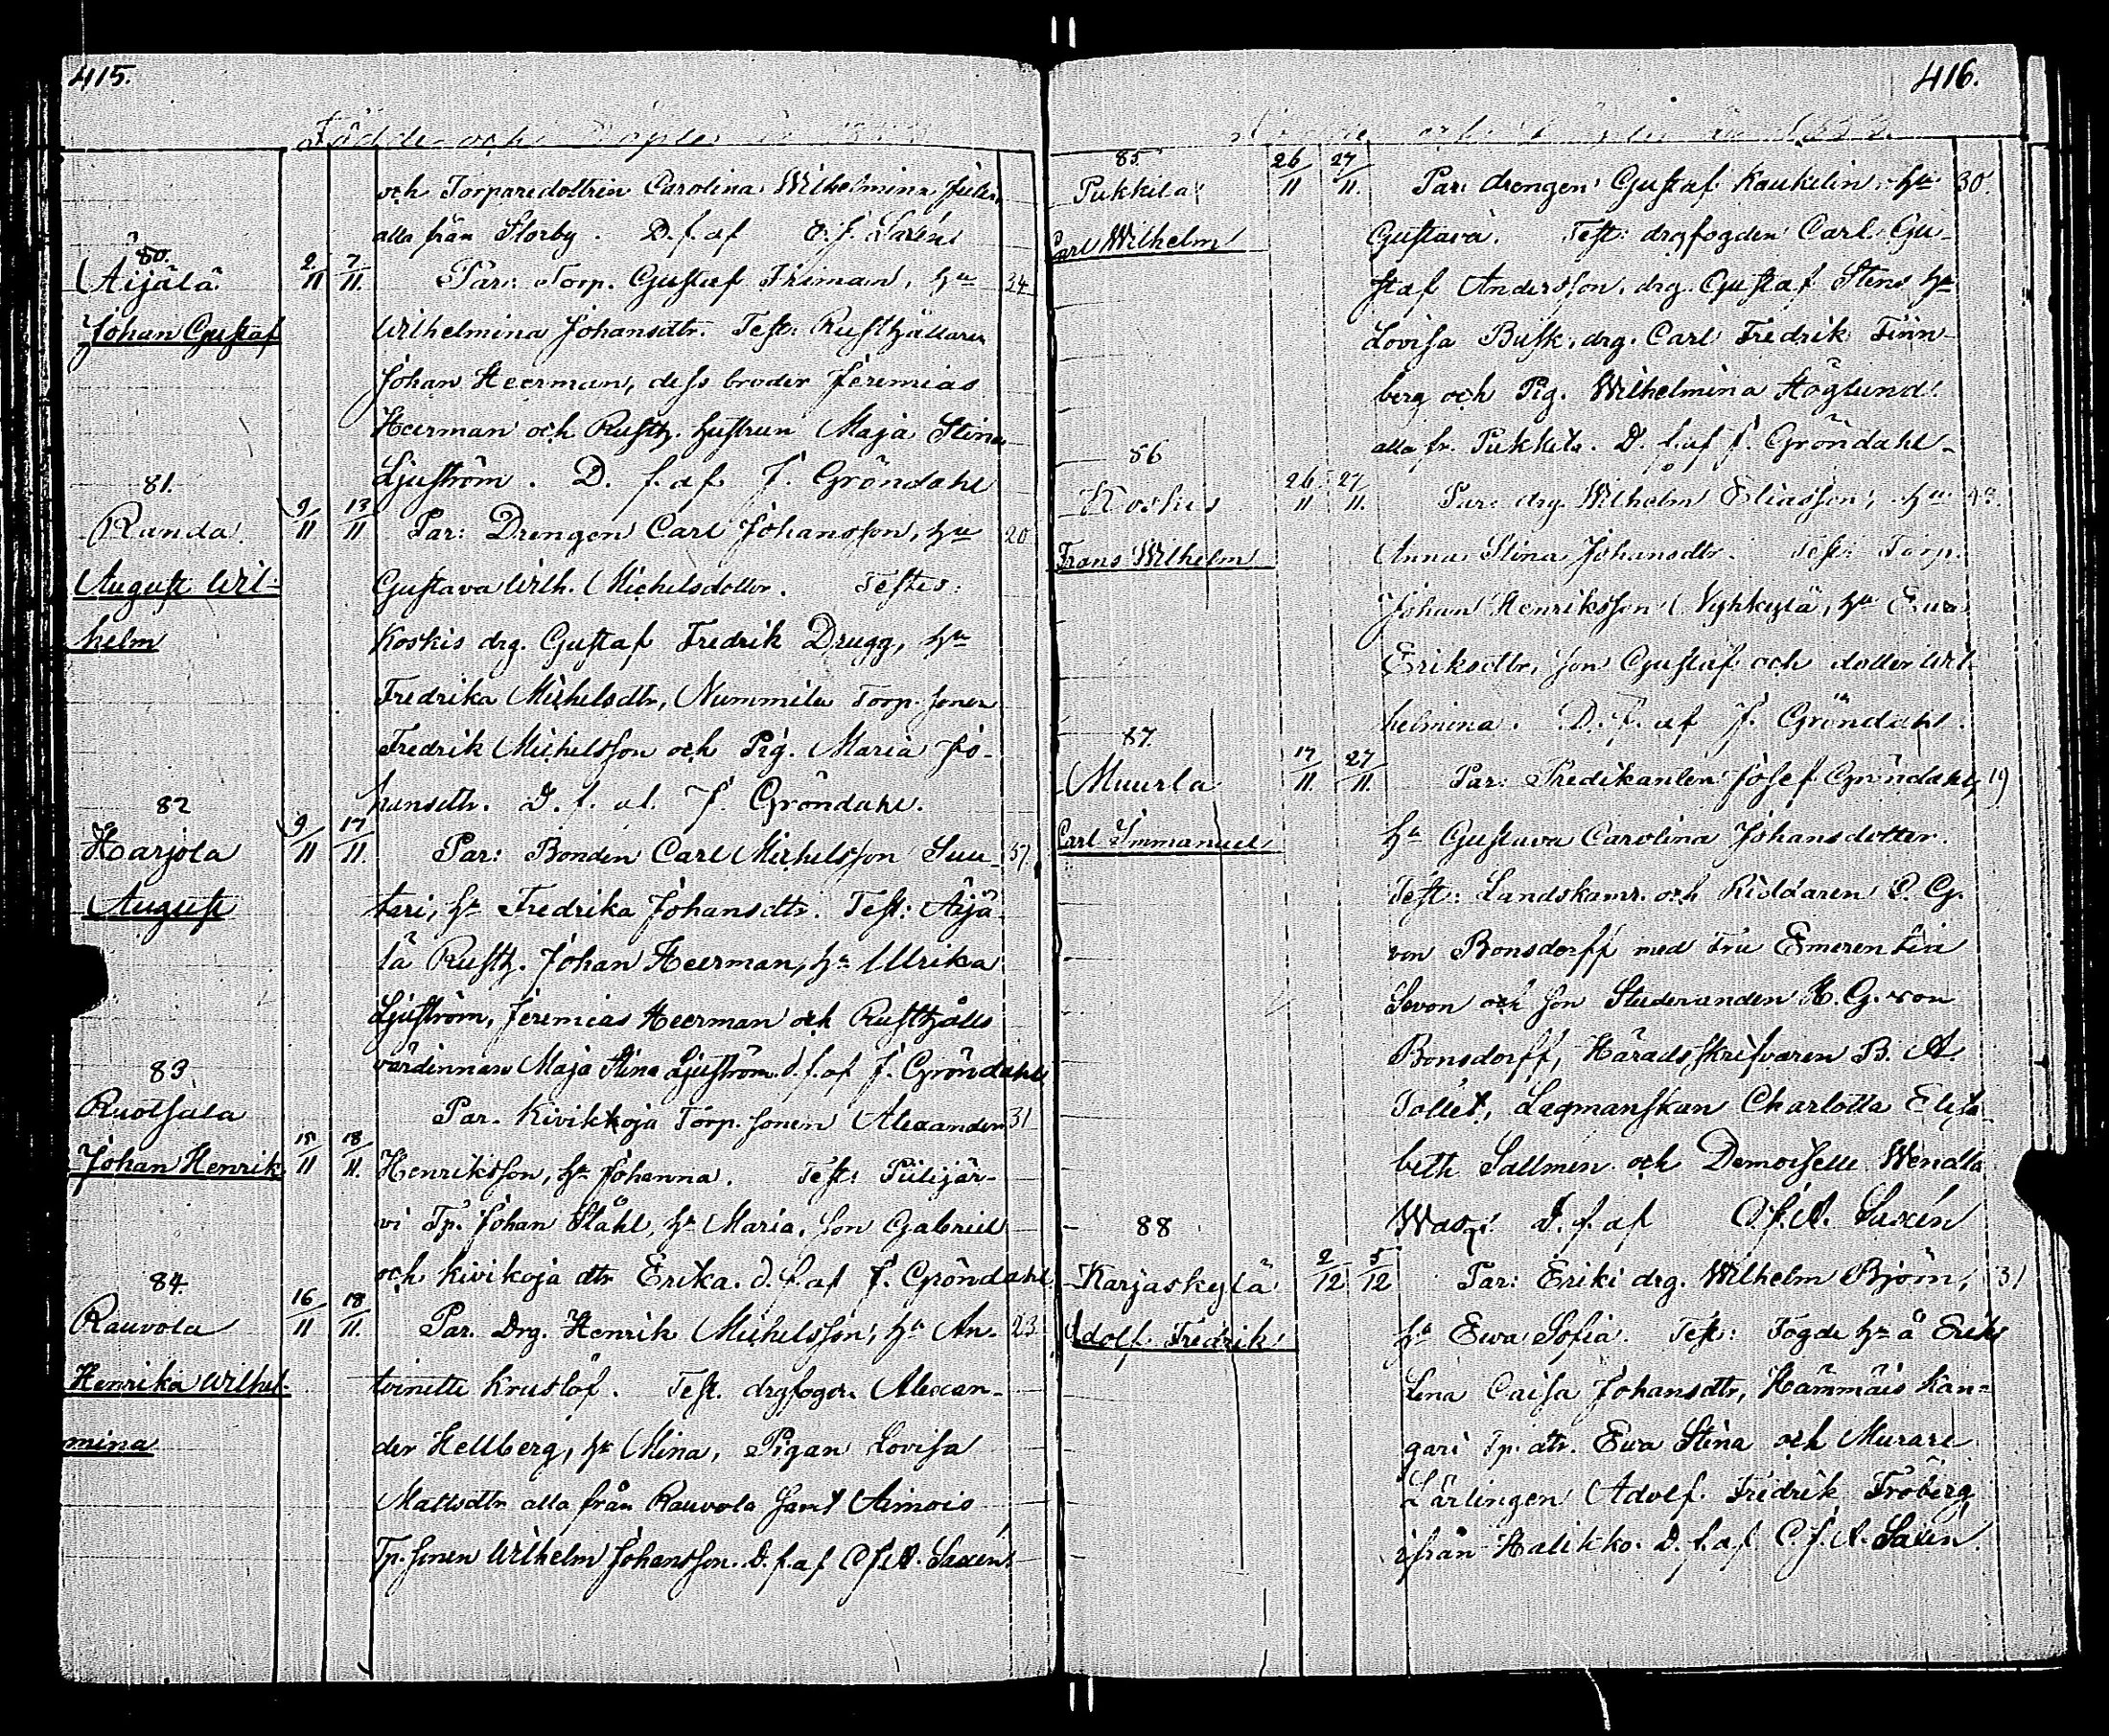 415.
Födde och Döpte år
och Torparedottren Carolina Wilhelmina
alla från Storby. D. f. af
80.
Äijälä 2/11 7/11. Par: Torp. Gustaf Friman, hu 34
Johan Gustaf Wilhelmina Johansdtr. Test: Rusthållaren
Johan Heerman, dess broder Jeremias
Heerman och Rusth. hustrun Maja Stina
Ljuström. D. f. af J. Gröndahl
81.
Randa. 9/11 13/11 Par: Drengen Carl Johansson, hu 20
August Wil- Gustava Wilh. Michelsdotter. Testes:
helm Koskis drg. Gustaf Fredrik Drugg, hu
Fredrika Michelsdtr, Nummila Torp. sonen
Fredrik Michelsson och Pig. Maria Jo-
hansdtr. D. f. af. J. Gröndahl.
82
Harjola 9/11 17/11. Par: Bonden Carl Michelsson Suu- 37.
August tari, hu Fredrika Johansdtr. Test: Äijä-
lä Rusth. Johan Heerman, hu Ulrika
Ljuström, Jeremias Heerman och Rusthålls
värdinnan Maja Stina Ljuström. d. f. af J. Gröndahl
83.
Ruotsala Par. Kivikkoja Torp. sonen Alexander 31
Johan Henrik 15/11 18/11. Henriksson, hu Johanna. Test: Piilijär-
vi Tp. Johan Ståhl, hu Maria, son Gabriel
och Kivikoja dtr Erika. d. f. af J. Gröndahl
84.
Rauvola 16/11 18/11. Par. Drg. Henrik Michelsson, hu An- 23
Henrika Wilhel- toinette Kruslöf. Test. drgfogd. Alexan-
mina der Hellberg, hu Mina, Pigan Lovisa
Mattsdtr alla från Rauvola samt Aimois
Tp. sonen Wilhelm Johansson. D. f. af C. J. A. Saxén.
416.
85.
Pukkila 26/11 27/11. Par: drengen Gustaf Kaukelin, hu 30.
Carl Wilhelm Gustava. Test: drgfogden Carl Gu-
staf Andersson, drg. Gustaf Stens hu
Lovisa Busk, drg. Carl Fredrik Finn-
berg och Pig. Wilhelmina Höglund.
alla fr. Pukkila. D. f. af J. Gröndahl.
86
Koskis 26/11 27/11. Par: drg. Wilhelm Eliasson, hu
Frans Wilhelm Anna Stina Johansdtr. Test: Torp.
Johan Henriksson Nyhkylä, hu Eva
Eriksdtr, son Gustaf och dotter Wil-
helmina. D. f. af J. Gröndahl.
87.
Muurla 17/11. 27/11. Par: Predikanten Josef Gröndahl, 19
Carl Immanuel hu Gustava Carolina Johansdotter.
Test: Landskamr. och Riddaren C. G.
von Bonsdorff med Fru Emerentia
Sevon och son Studeranden K. G. von
Bonsdorff, Häradsskrifvaren B. A
Tollet, Lagmanskan Charlotta Elisa-
beth Sallmen och Demoiselle Wendla
D. f. af C. J. A. Saxén
88
Karjaskylä 2/12 5/12 Par: Eriki drg. Wilhelm Björn, 31
Adolf Fredrik hu Ewa Sofia. Test: Fogde hu å Eriks
Lena Caisa Johansdtr, Hämmäis Kan-
gari Tp. dtr. Ewa Stina och Murare
Lärlingen Adolf Fredrik Fröberg
ifrån Halikko. D. f. af C. J. A. Saxén.